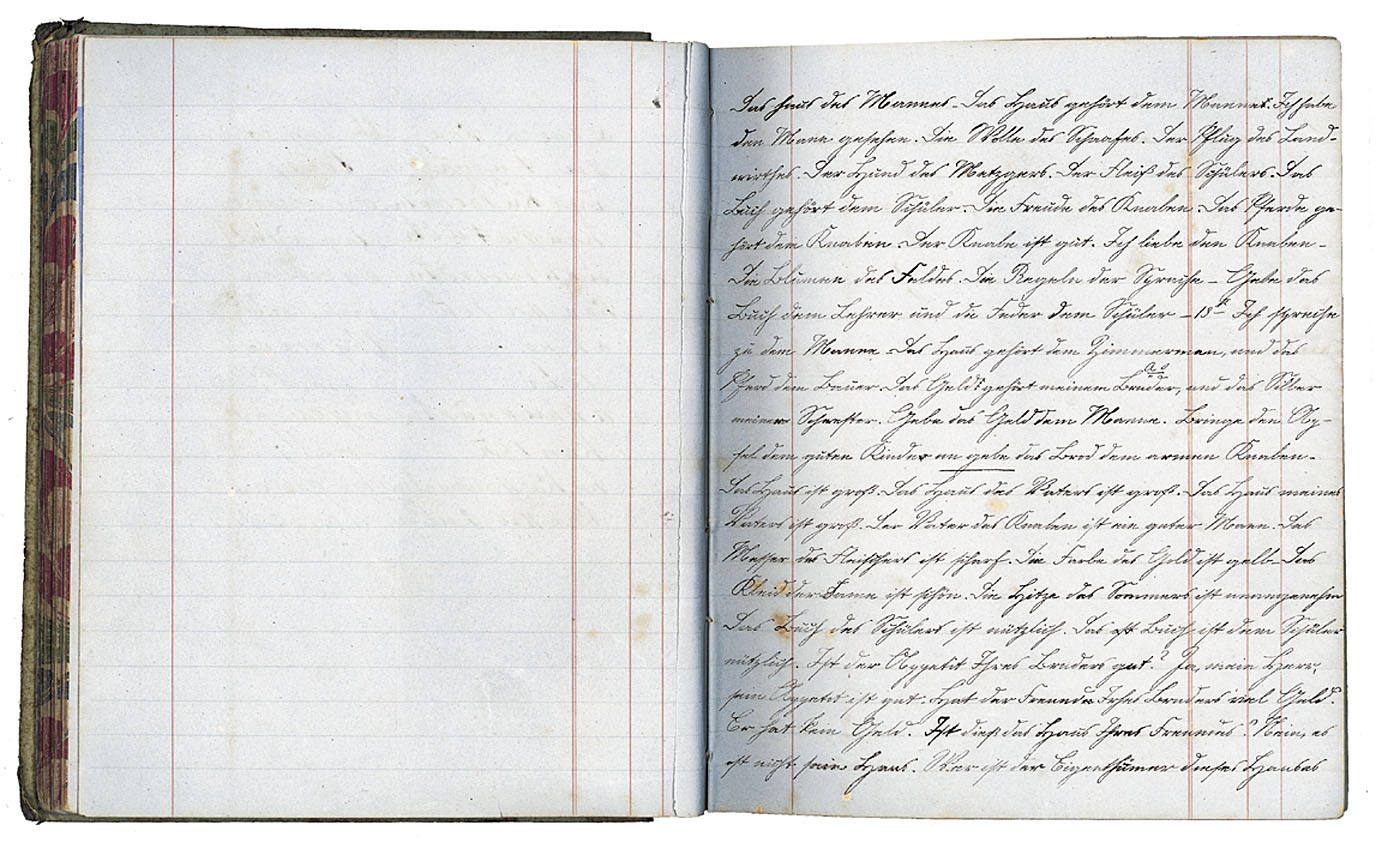 Das Haus des Mannes – Das Haus gehört dem Mannes. Ich habe
den Mann gesehen. Die Wolle des Schaafes. Der Pflug des Land-
wirthes. Der Hund des Metzgers. Der Fleiß des Schülers. Das
Buch gehört dem Schüler. Die Freude des Knaben. Das Pferde ge-
hört dem Knaben. Der Knabe ist gut. Ich liebe den Knaben –
Die Blumen des Feldes. Die Regeln der Sprache – Gebe das
Buch dem Lehrer und die Feder dem Schüler – Ich spreche
zu dem Manne. Das Haus gehört dem Zimmerman, und das
Pferd dem Bauer. Das Geld gehört meinem Bruder, und das Silber
meiner Schwester. Gebe das Geld dem Manne. Bringe den Ap-
fel dem guten Kinder an gebe das Brod dem armen Knaben –
Das Haus ist groß. Das Haus des Vaters ist groß. Das Haus meines
Vaters ist groß. Der Vater des Knaben ist ein guter Mann. Das
Messer des Fleischers ist scharf. Die Farbe des Gold ist gelb – Das
Kleid der Dame ist schön. Die Hitze des Sommers ist unangenehm
Das Buch des Schülers ist nützlich. Das Buch ist dem Schüler
nützlich. Ist der Appetit Ihres Bruders gut? Ja, mein Herr,
sein Appetit ist gut. Hat der Freunde Ihres Bruders viel Geld.
Er hat kein Geld. Ist dieß das Haus Ihres Freundes? Nein, es
ist nicht sein Haus. Wer ist der Eigenthümer dieses Hauses